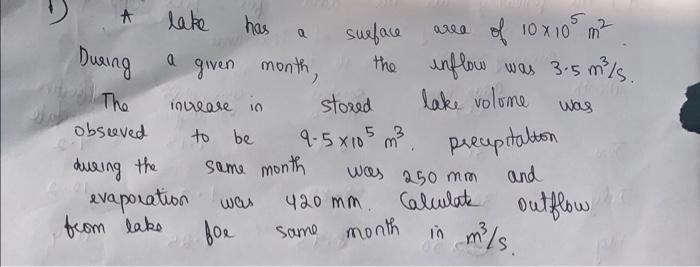 1) A lake has a surface area of 10 x 10⁵ m².
During a given month, the inflow was 3.5 m³/s.
The increase in stored lake volume was
observed to be 9.5 x 10⁵ m³. precipitation
during the same month was 250 mm and
evaporation was 420 mm. Calculate outflow
from lake for same month in m³/s.